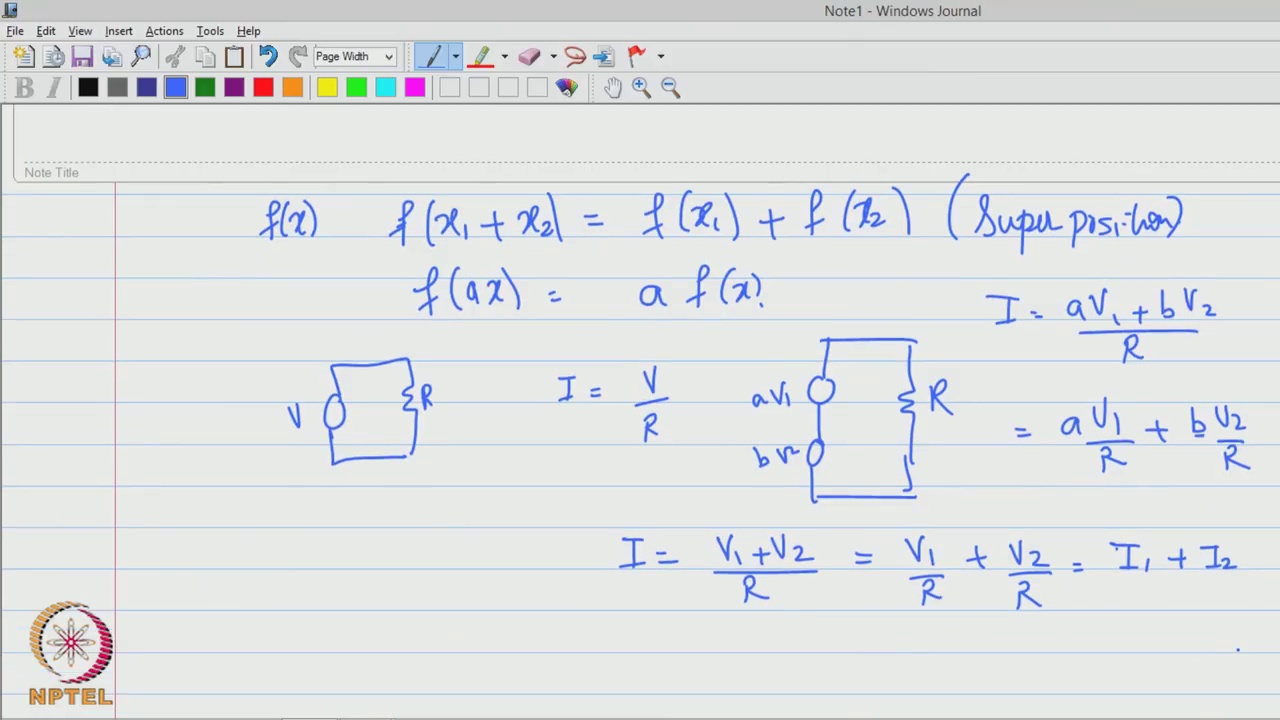 Note1 - Windows Journal
File Edit View Insert Actions Tools Help
Page Width
B I
Note Title
f(x) f(x1 + x2) = f(x1) + f(x2) (Superposition)
f(ax) = a f(x)
I = aV1 + bV2 / R
V R I = V / R aV1 R
= a V1 / R + b V2 / R
bV2
I = V1 + V2 / R = V1 / R + V2 / R = I1 + I2
NPTEL